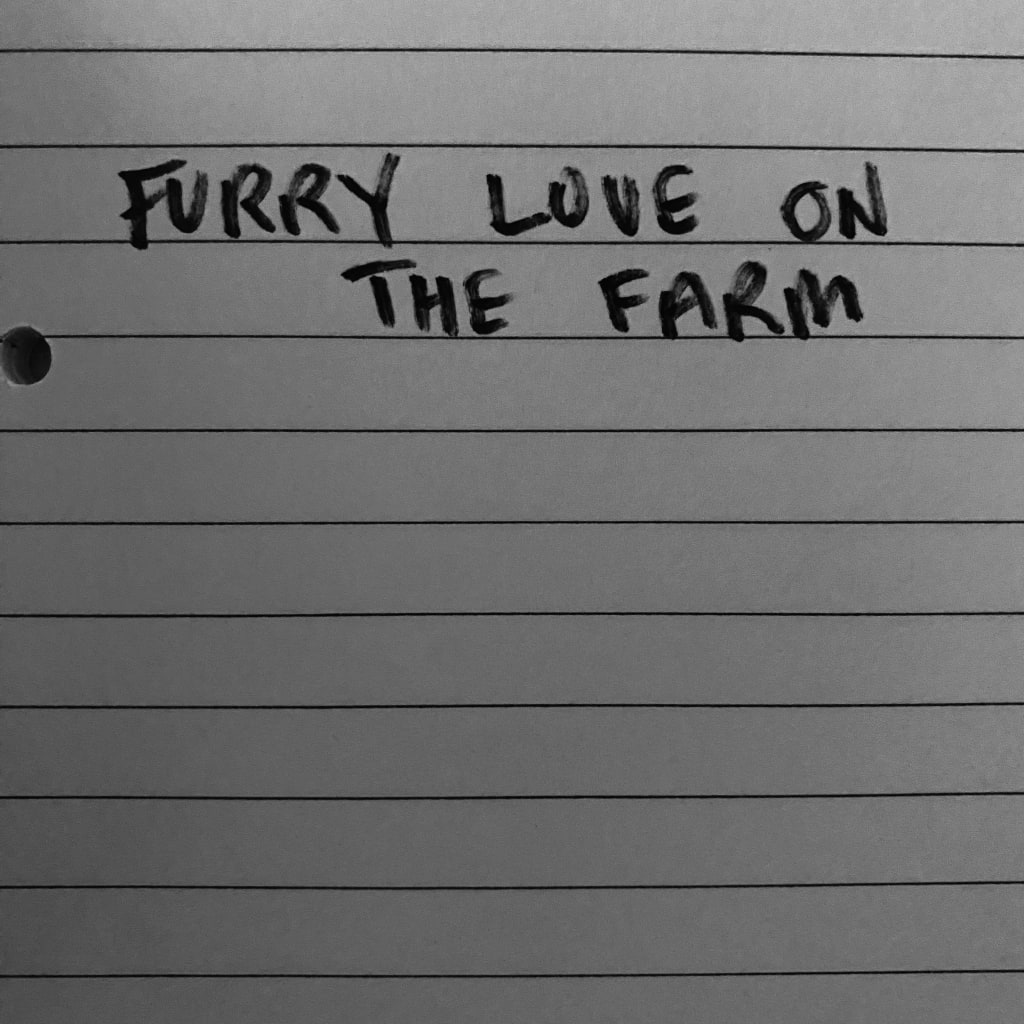 FURRY LOVE ON
THE FARM